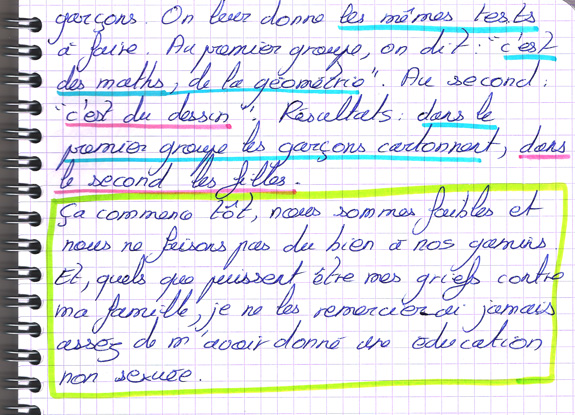 garçons. On leur donne les mêmes tests
à faire. Au premier groupe, on dit : "c'est
des maths, de la géométrie". Au second :
"c'est du dessin". Résultats : dans le
premier groupe les garçons cartonnent, dans
le second les filles.
Ça commence tôt, nous sommes faibles et
nous ne faisons pas du bien à nos gamins.
Et, quels que puissent être mes griefs contre
ma famille, je ne les remercierai jamais
assez de m'avoir donné une éducation
non sexuée.